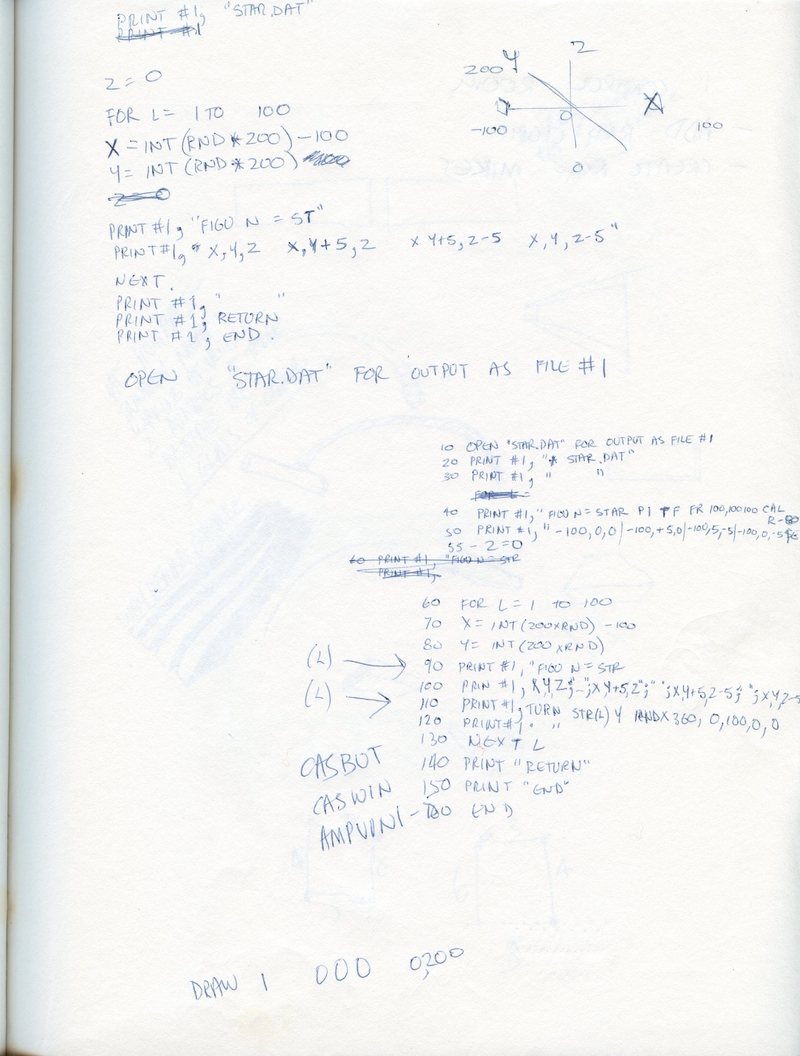 PRINT #1, "STAR.DAT"
PRINT #1
Z = 0
FOR L = 1 TO 100
X = INT (RND * 200) - 100
Y = INT (RND * 200)
Z = 0
PRINT #1, "FIGU N = ST"
PRINT #1, " X, Y, Z X, Y+5, Z X Y+5, Z-5 X, Y, Z-5"
NEXT.
PRINT #1, " "
PRINT #1, RETURN
PRINT #1, END.
OPEN "STAR.DAT" FOR OUTPUT AS FILE #1
Z
200 Y
0 X
-100 100
0
10 OPEN "STAR.DAT" FOR OUTPUT AS FILE #1
20 PRINT #1, "* STAR.DAT"
30 PRINT #1, " "
FOR L =
40 PRINT #1, "FIGU N = STAR P1 TF FR 100,100100 CAL
R-80
50 PRINT #1, " -100,0,0|-100,+5,0|-100,5,-5|-100,0,-5
55 - Z = 0
60 PRINT #1, "FIGU N = STR
PRINT #1,
60 FOR L = 1 TO 100
70 X = INT (200 X RND) - 100
80 Y = INT (200 X RND)
(L) 90 PRINT #1, "FIGU N = STR
100 PRIN #1, X,Y,Z;" ";X Y+5,Z";" ";X,Y+5,Z-5;" ";X,Y,Z-5
(L) 110 PRINT #1, TURN STR(L) Y RND X 360, 0,100,0,0
120 PRINT #1 " "
130 NEXT L
CASBUT 140 PRINT "RETURN"
CASWIN 150 PRINT "END"
END
DRAW 1 000 0,200